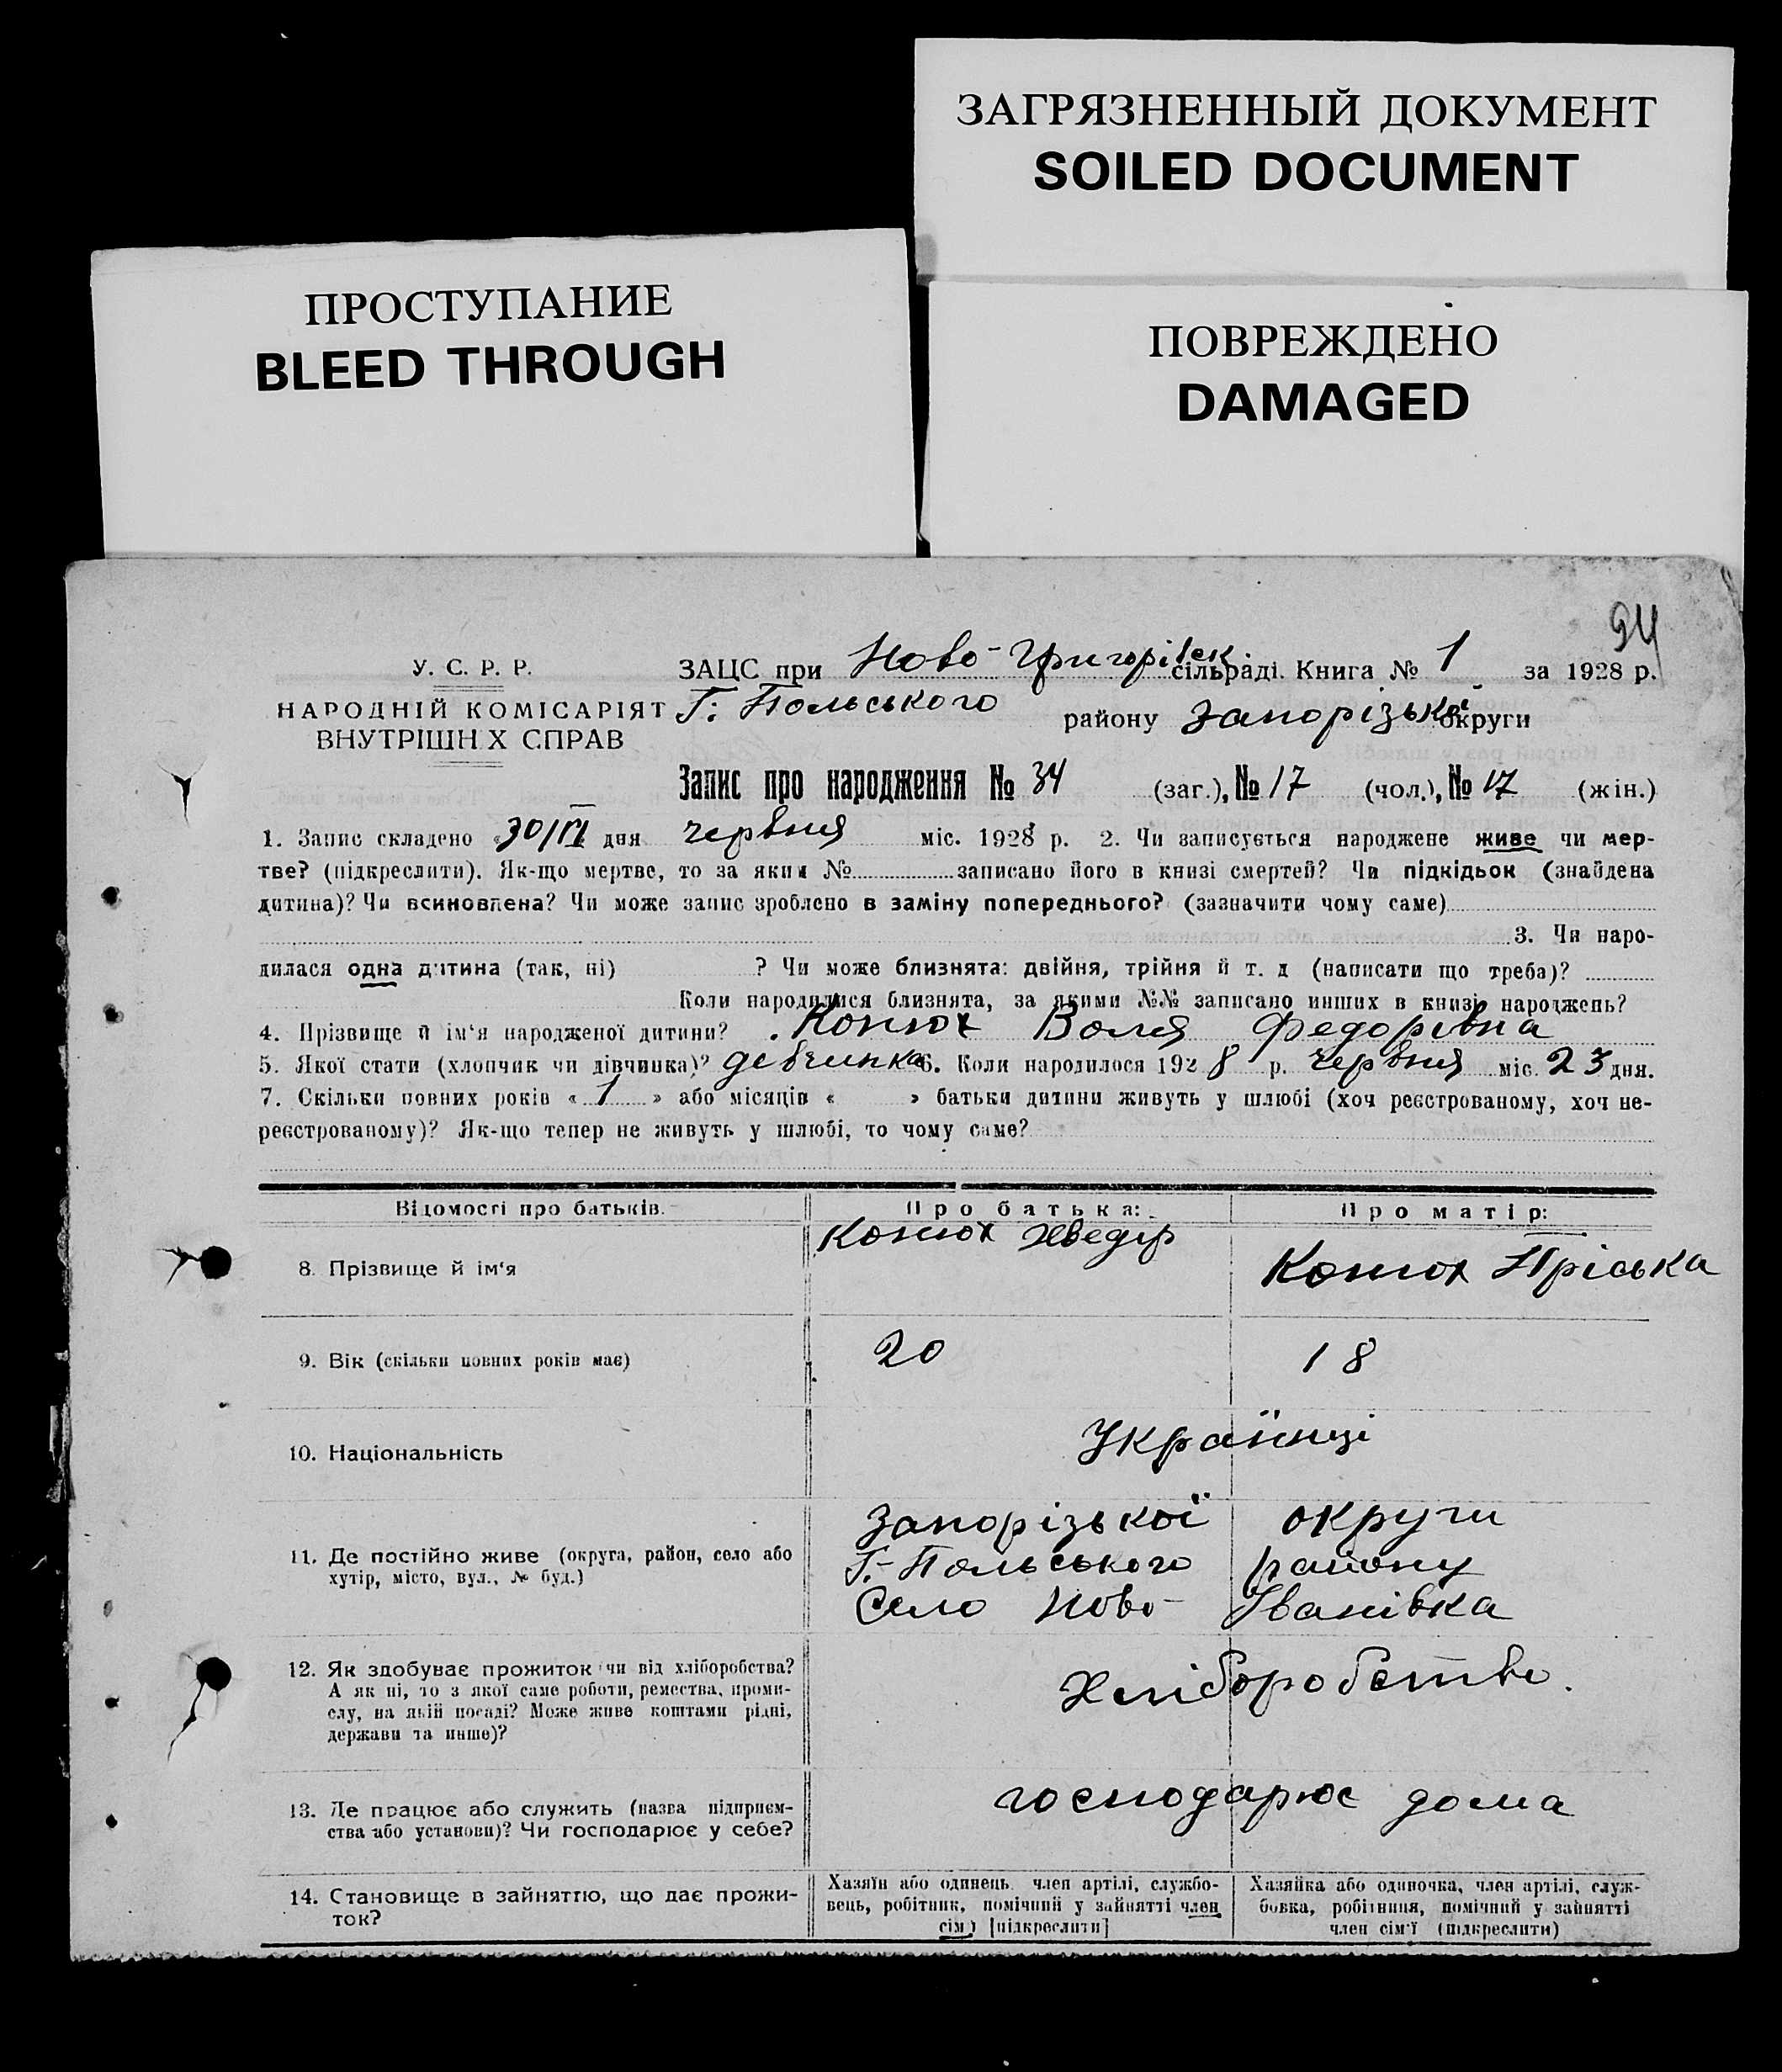 ЗАГРЯЗНЕННЫЙ ДОКУМЕНТ
SOILED DOCUMENT
ПРОСТУПАНИЕ
BLEED THROUGH
ПОВРЕЖДЕНО
DAMAGED
94
У. С. Р. Р.
НАРОДНІЙ КОМІСАРІЯТ
ВНУТРІШН Х СПРАВ
ЗАЦС при Ново-Григорівск. сільраді. Книга № 1 за 1928 р.
Г. Польського району Запорізької округи
Запис про народження № 34 (заг.), № 17 (чол.), № 17 (жін.)
1. Запис складено «30/VI дня червня міс. 1928 р. 2. Чи записується народжене живе чи мер-
тве? (підкреслити). Як-що мертве, то за яким № записано його в книзі смертей? Чи підкідьок (знайдена
дитина)? Чи всиновлена? Чи може запис зроблено в заміну попереднього? (зазначити чому саме)
3. Чи наро-
дилася одна дитина (так, ні) ? Чи може близнята: двійня, трійня й т. д (написати що треба)?
Коли народилися близнята, за якими №№ записано инших в книзі народжень?
4. Прізвище й ім‘я народженої дитини? Конюх Воля Федорівна
5. Якої стати (хлопчик чи дівчинка)? девчинка 6. Коли народилося 1928 р. червня міс. 23 дня.
7. Скільки повних років « 1 » або місяців « » батьки дитини живуть у шлюбі (хоч реєстрованому, хоч не-
реєстрованому)? Як-що тепер не живуть у шлюбі, то чому саме?
Відомості про батьків.
Про батька:
Про матір:
8. Прізвище й ім‘я
Конюх Хведір
Конюх Пріська
9. Вік (скільки повних років має)
20
18
10. Національність
Українці
11. Де постійно живе (округа, район, село або
хутір, місто, вул., № буд.)
Запорізької округи
Г.-Польського району
Село Ново-Іванівка
12. Як здобуває прожиток чи від хліборобства?
А як ні, то з якої саме роботи, ремества, проми-
слу, на якій посаді? Може живе коштами рідні,
держави та инше)?
Хліборобство.
13. Де працює або служить (назва підприєм-
ства або установи)? Чи господарює у себе?
господарює дома
14. Становище в зайняттю, що дає прожи-
ток?
Хазяїн або одинець член артілі, службо-
вець, робітник, помічний у зайнятті член
сім'ї [підкреслити]
Хазяйка або одиночка, член артілі, служ-
бовка, робітниця, помічний у зайнятті
член сім'ї (підкреслити)